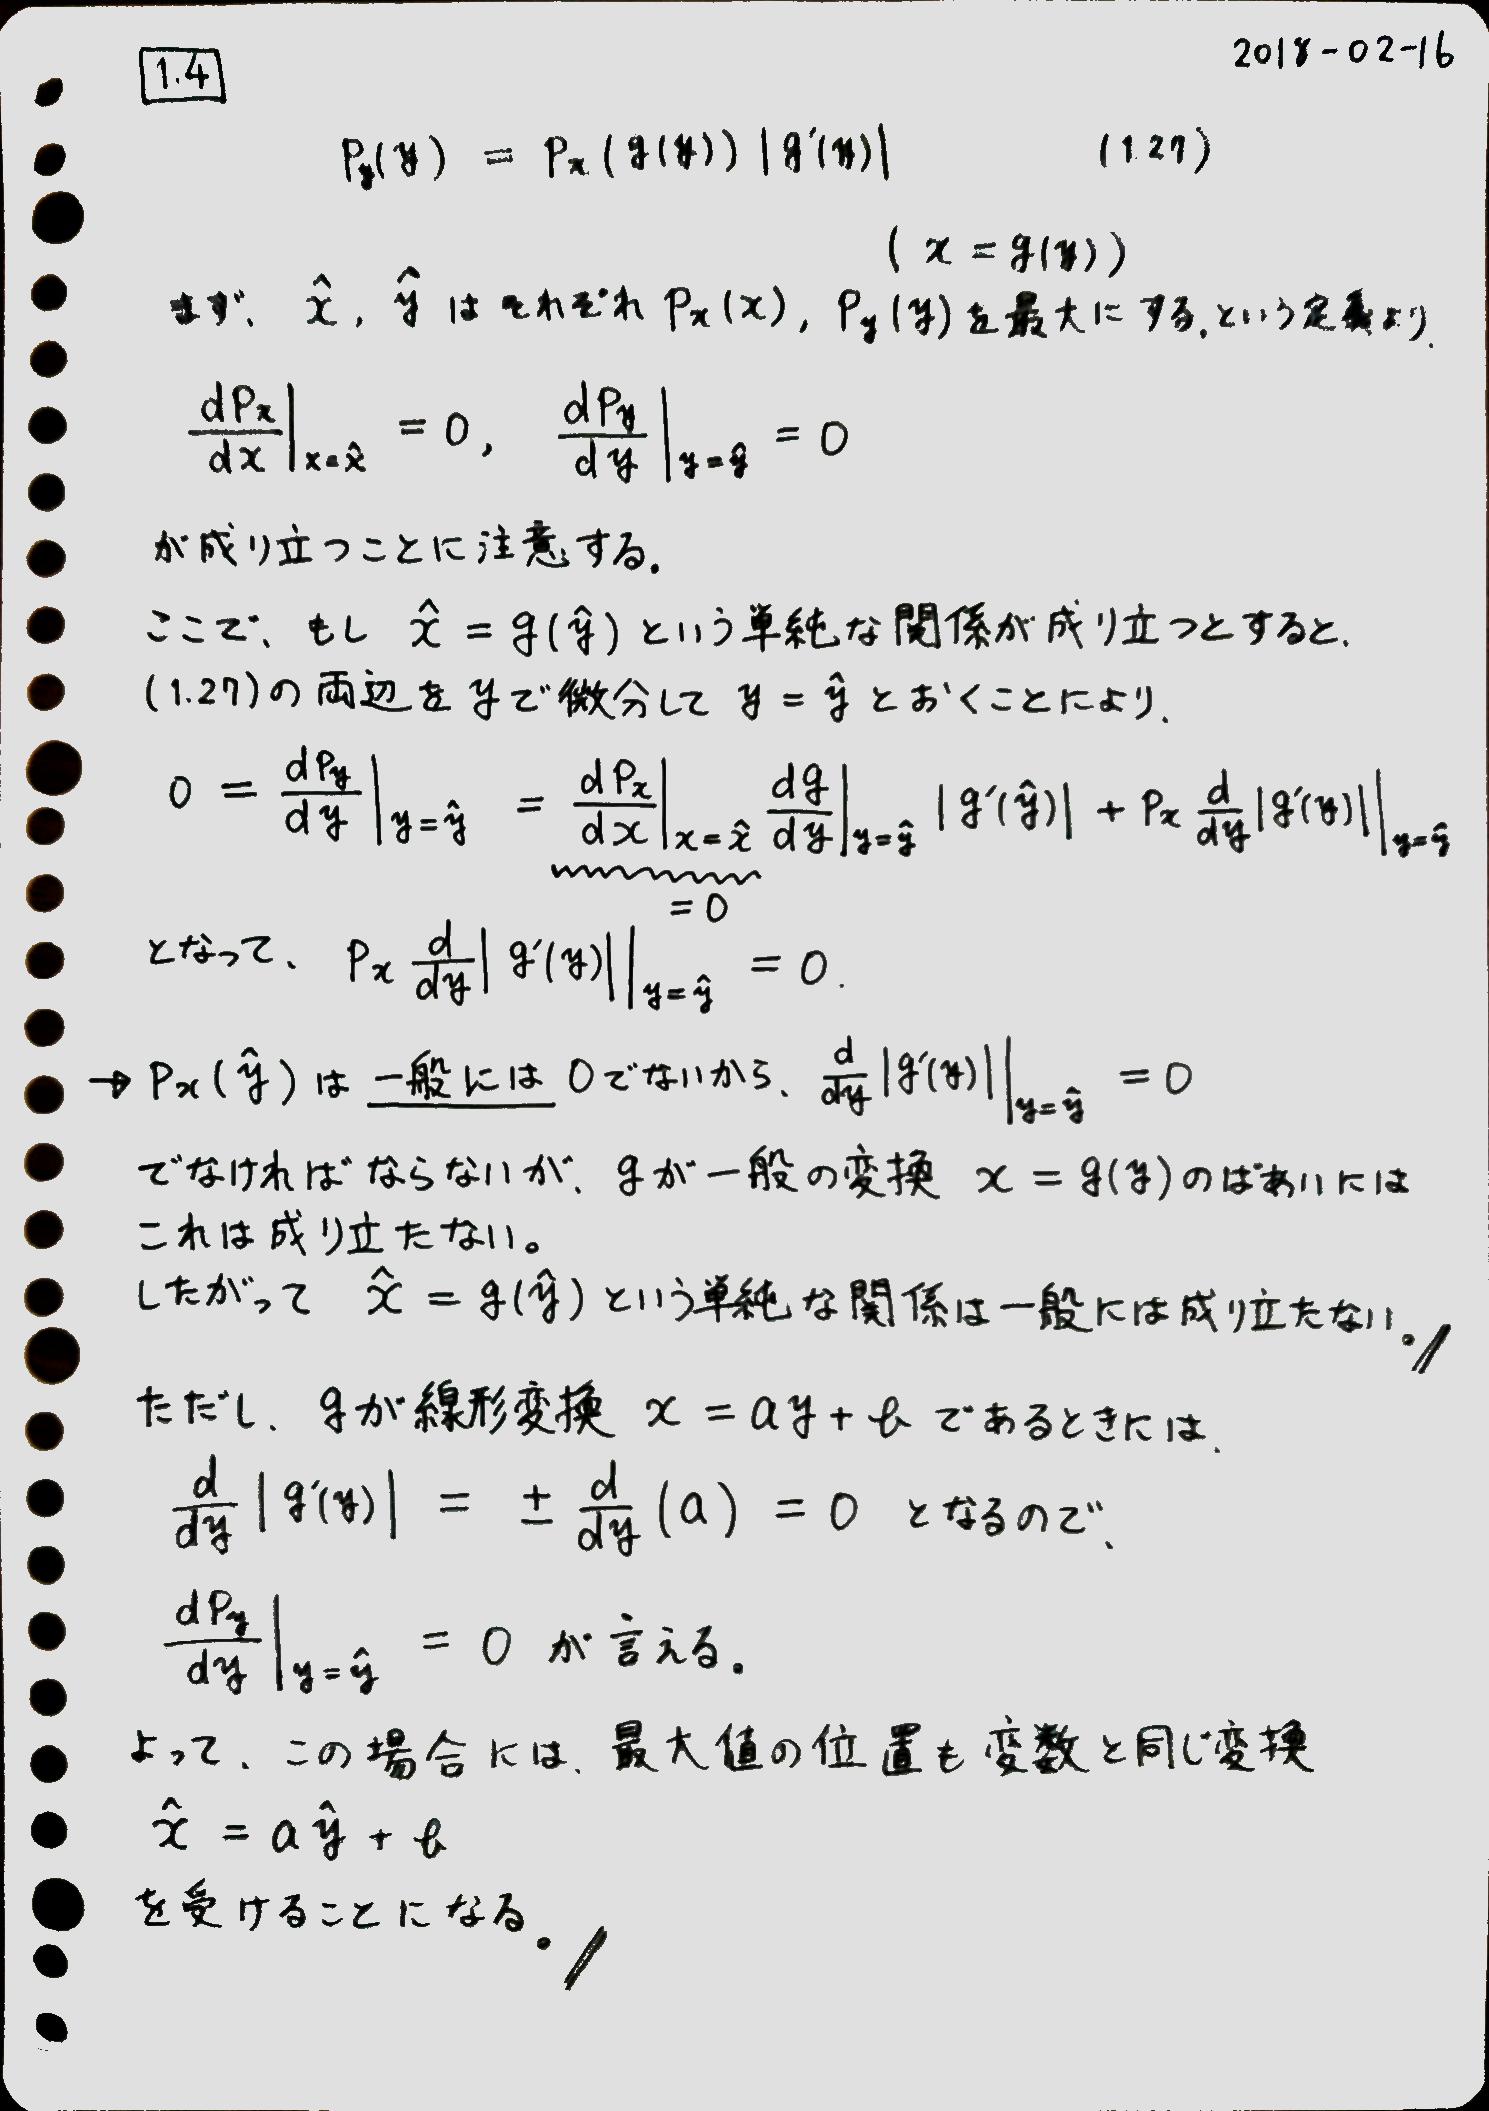 1.4
2018-02-16
P_y(y) = P_x(g(y))|g'(y)| (1.27)
(x = g(y))
まず、 x̂, ŷ はそれぞれ P_x(x), P_y(y) を最大にする、という定義より、
dP_x/dx|_{x=x̂} = 0, dP_y/dy|_{y=ŷ} = 0
が成り立つことに注意する.
ここで、もし x̂ = g(ŷ) という単純な関係が成り立つとすると、
(1.27)の両辺を y で微分して y = ŷ とおくことにより、
0 = dP_y/dy|_{y=ŷ} = dP_x/dx|_{x=x̂} dg/dy|_{y=ŷ} |g'(ŷ)| + P_x d/dy|g'(y)||_{y=ŷ}
= 0
となって、 P_x d/dy|g'(y)||_{y=ŷ} = 0.
→ P_x(ŷ) は一般には 0 でないから、 d/dy|g'(y)||_{y=ŷ} = 0
でなければならないが、 g が一般の変換 x = g(y) のばあいには
これは成り立たない。
したがって x̂ = g(ŷ) という単純な関係は一般には成り立たない。//
ただし、 g が線形変換 x = ay + b であるときには、
d/dy|g'(y)| = ± d/dy(a) = 0 となるので、
dP_y/dy|_{y=ŷ} = 0 が言える。
よって、この場合には、最大値の位置も変数と同じ変換
x̂ = aŷ + b
を受けることになる。//